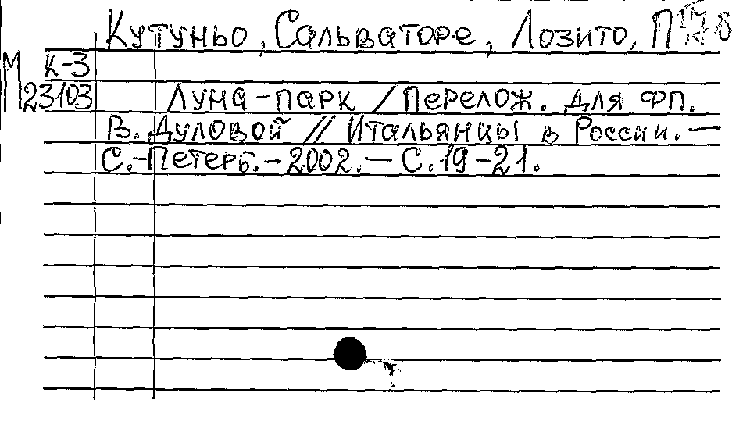 Кутуньо, Сальваторе, Лозито, П
М К-3
23103 Луна-парк / Перелож. для фп.
В. Дуловой // Итальянцы в России. —
С.-Петерб. - 2002. — С. 19-21.